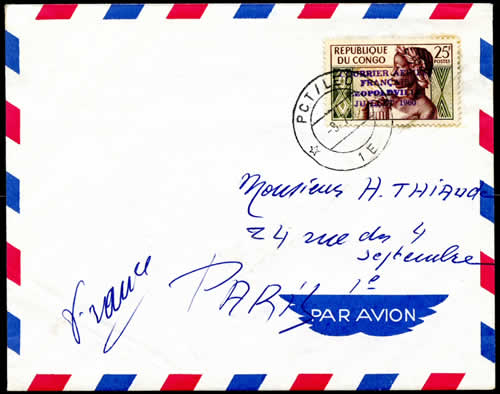 REPUBLIQUE 25F
DU CONGO POSTES
COURRIER AERIEN
FRANÇAIS
LEOPOLDVILLE
JUILLET 1960
PCT/LEO
1E
Monsieur H. THIAUDE
24 rue du 4
Septembre
PARIS 2e
France
PAR AVION